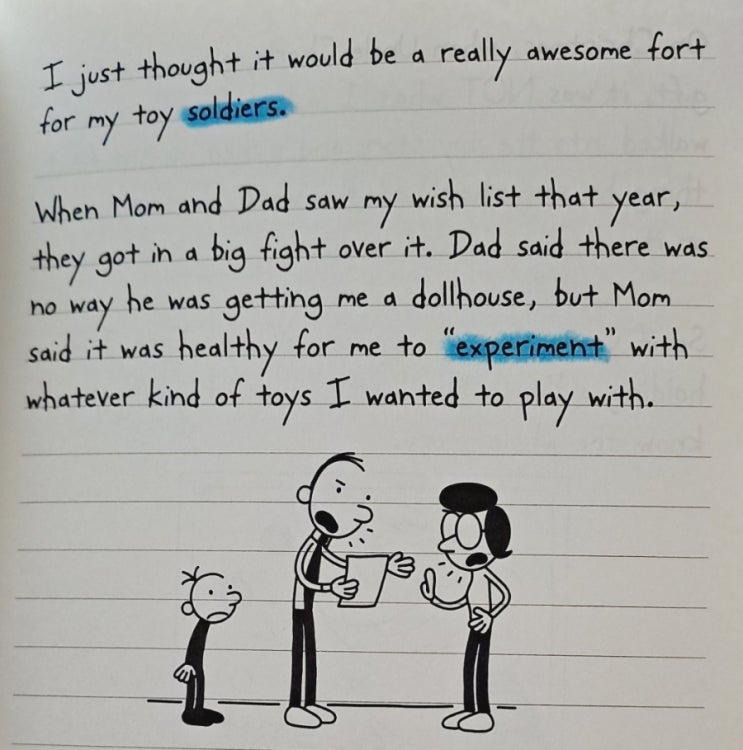 I just thought it would be a really awesome fort
for my toy soldiers.
When Mom and Dad saw my wish list that year,
they got in a big fight over it. Dad said there was
no way he was getting me a dollhouse, but Mom
said it was healthy for me to “experiment” with
whatever kind of toys I wanted to play with.